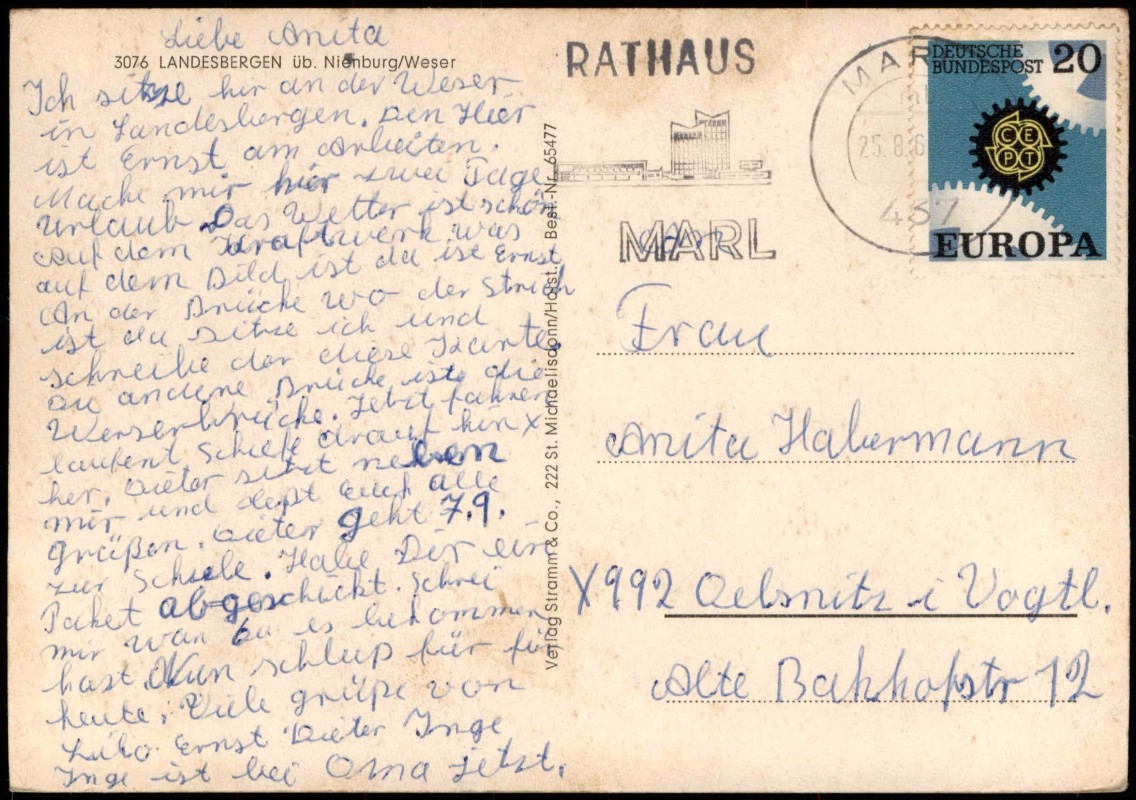 Liebe Anita
3076 LANDESBERGEN üb. Nienburg/Weser
Ich sitze hir an der Weser
in Landesbergen. Den Hier
ist Ernst am Arbeiten.
Mache mir hier zwei Tage
Urlaub. Das Wetter ist schön
auf dem Kraftwerk was
auf dem Bild ist da ist Ernst
An der Brücke wo der Strich
ist da sitze ich und
schreibe dir diese Karte.
Die andere Brücke ist die
Weserbrücke. Jetzt fahren
laufent Schiffe drauf hin x
her. Dieter sitzt neben
mir und leßt Euch alle
grüßen. Dieter geht 7.9.
zur Schule. Habe Dir ein
Paket abgeschickt. Schrei
mir wan Du es bekommen
hast. Nun schluß für für
heute. Viele grüße von
Ernst Dieter Inge
Inge ist bei Oma jetzt.
Verlag Stramm & Co., 222 St. Michaelisdonn/Holst. Best.-Nr. 65477
RATHAUS
MARL
MAR
25.8.6
437
DEUTSCHE
BUNDESPOST 20
CEPT
EUROPA
Frau
Anita Habermann
X992 Oelsnitz i Vogtl.
Alte Bahhofstr 12